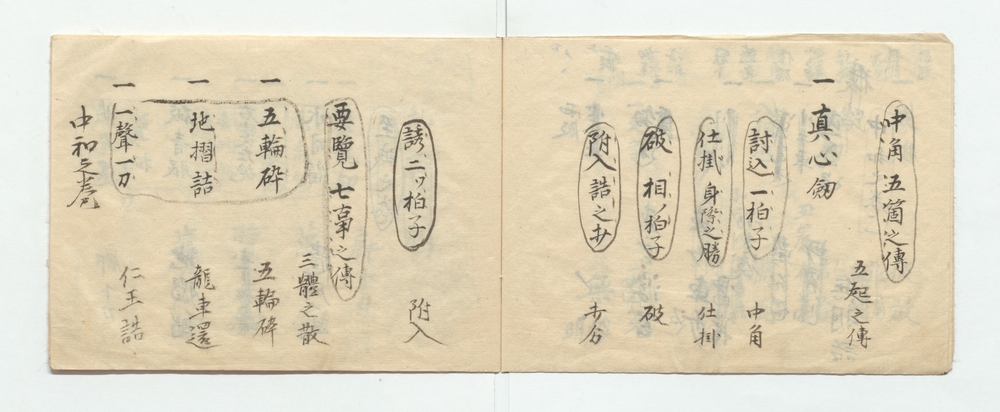 中角五箇之傳
五起之傳
一 真心劔
討込一拍子 中角
仕掛身際之勝 仕掛
破相ノ拍子 破
附入詰之歩 歩分
誘二ツ拍子 附入
要覽七事之傳
三體之散
一 五輪砕 五輪砕
一 地摺詰 龍車還
一 一聲一刀 仁王詰
中和之巻